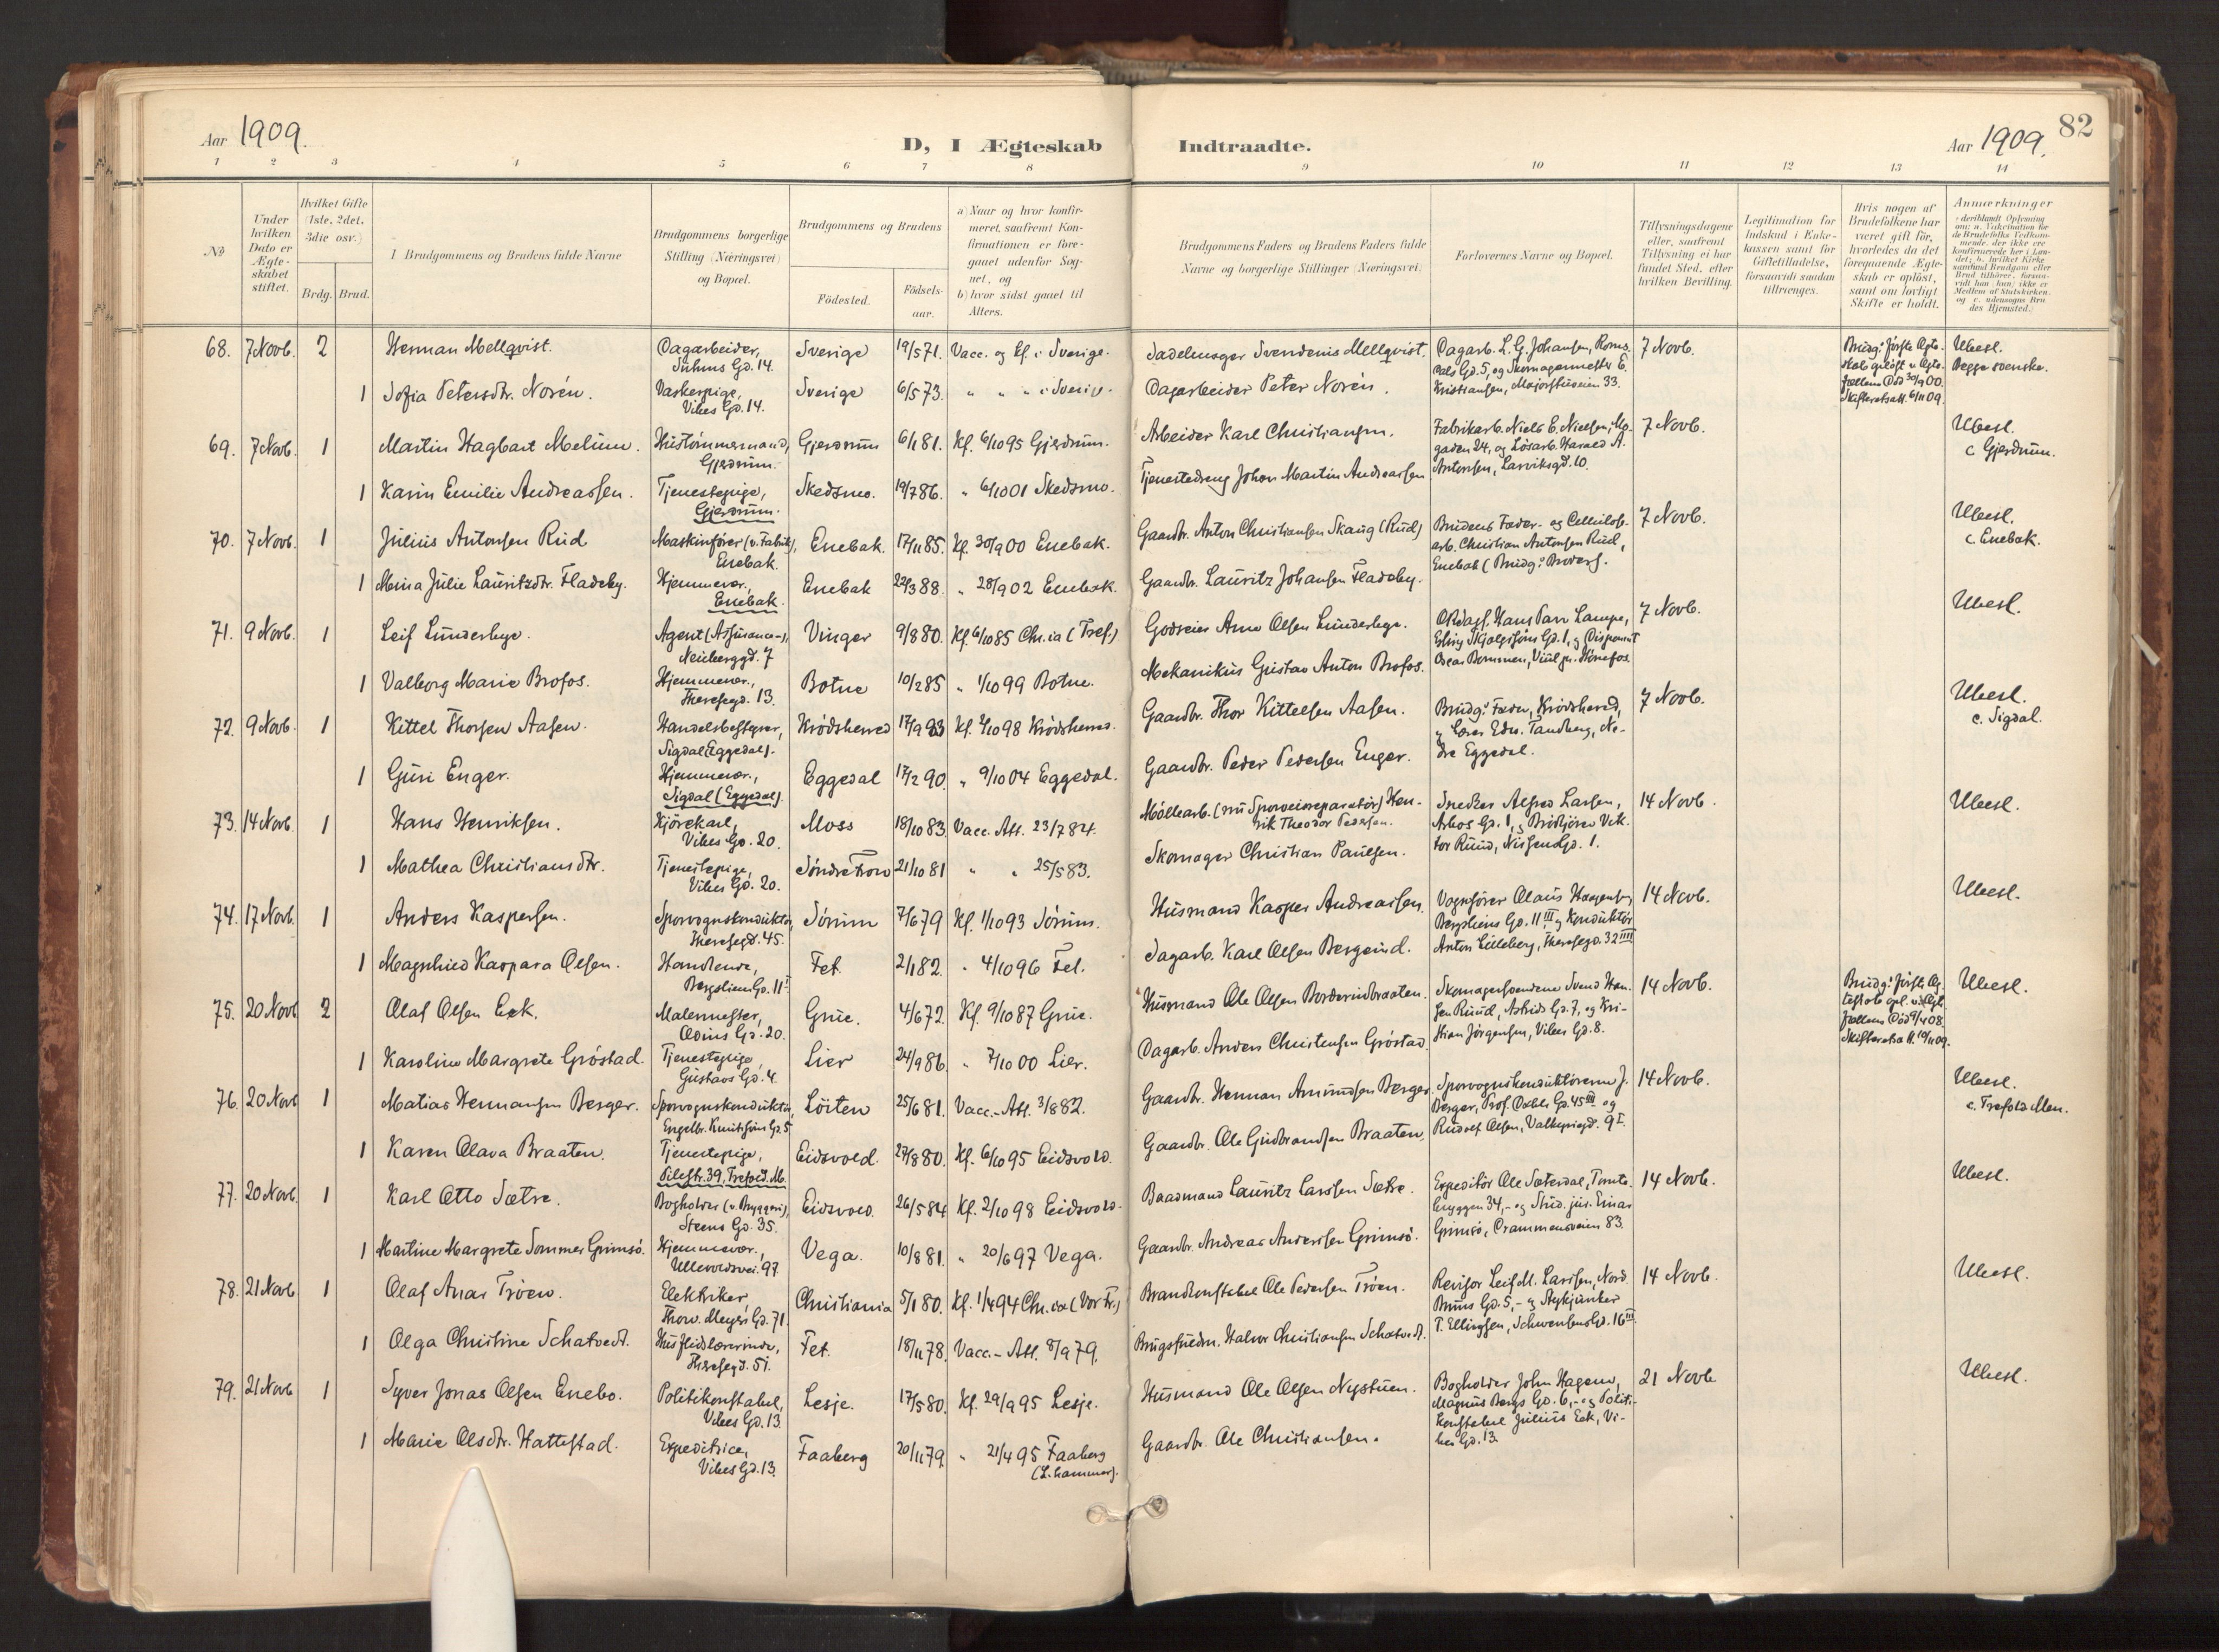 Aar 1909.
D, I Ægteskab Indtraadte.
Aar 1909.
82
1 2 3 4 5 6 7 8 9 10 11 12 13 14
No
Under hvilken Dato er Ægteskabet stiftet.
Hvilket Gifte (1ste, 2det, 3die osv.)
Brdg. Brud.
Brudgommens og Brudens fulde Navne
Brudgommens borgerlige Stilling (Næringsvei) og Bopæl.
Brudgommens og Brudens
Födested.
Födselsaar.
a) Naar og hvor konfirmeret, saafremt Konfirmationen er foregaaet udenfor Sognet, og
b) hvor sidst gaaet til Alters.
Brudgommens Faders og Brudens Faders fulde Navne og borgerlige Stillinger (Næringsvei)
Forlovernes Navne og Bopæl.
Tillysningsdagene eller, saafremt Tillysning ei har fundet Sted, efter hvilken Bevilling.
Legitimation for Indskud i Enkekassen samt for Giftetilladelse, forsaavidt saadan tiltrænges.
Hvis nogen af Brudefolkene har været gift för, hvorledes da det foregaaende Ægteskab er oplöst, samt om lovligt Skifte er holdt.
Anmærkninger
68. 7 Novb. 2 Herman Mellqvist. Dagarbeider, Suhms Gd. 14. Sverige 19/5 71. Vacc. og kf. i Sverige. Sadelmager Svendenis Mellqvist. Dagarb. L. G. Johansen, Romsdals Gd. 5, og Skomagermester E. Kristiansen, Majorstuveien 33. 7 Novb. Ubesl. Begge svenske.
1 Sofia Petersdtr. Norén. Vaskerpige, Vibes Gd. 14. Sverige 6/5 73. " " " i Sverige. Dagarbeider Peter Norén.
69. 7 Novb. 1 Martin Hagbart Melum. Hustömmermand, Gjerdrum. Gjerdrum 6/1 81. Kf. 6/10 95 Gjerdrum. Arbeider Karl Christiansen. Fabrikarb. Niels E. Nielsen, gaden 24, og Lösarb. Harald A. Antonsen, Larviksgd. 10. 7 Novb. Ubesl. c. Gjerdrum.
1 Karin Emilie Andreassen. Tjenestepige, Gjerdrum. Skedsmo. 19/7 86. " 6/10 01 Skedsmo. Tjenestedreng Johan Martin Andreassen
70. 7 Novb. 1 Julius Antonsen Rud Maskinfører (v. Fabrik), Enebak. Enebak. 17/11 85. Kf. 30/9 00 Enebak. Gaardbr. Anton Christiansen Skaug (Rud) Brudens Fader - og Cellulosearb. Christian Antonsen Rud, Enebak (Brudg.s Broder). 7 Novb. Ubesl. c. Enebak.
1 Mina Julie Lauritzdtr. Fladeby. Hjemmevær., Enebak. Enebak 22/3 88. " 28/9 02 Enebak. Gaardbr. Lauritz Johansen Fladeby.
71. 9 Novb. 1 Leif Lunderbye. Agent (Assurance-), Neuberggd. 7 Vinger 9/8 80. Kf. 6/10 85 Chr.ia (Tref.) Godseier Arne Olsen Lunderbye. Hans Lampe, Erling Skjalgssöns Gd. 1, og Disponent Oscar Bommen, Viul pr. Hönefos. 7 Novb. Ubesl.
1 Valborg Marie Brofos. Hjemmevær., Theresegd. 13. Botne 10/2 85 " 1/10 99 Botne. Mekanikus Gustav Anton Brofos.
72. 9 Novb. 1 Kittel Thorsen Aasen. Handelsbestyrer, Sigdal (Eggedal). Krödsherred 17/9 83 Kf. 2/10 98 Krödsherred. Gaardbr. Thor Kittelsen Aasen. Brudg.s Fader, Krödsherred, og Lærer Edw. Tandberg, Nedre Eggedal. 7 Novb. Ubesl. c. Sigdal.
1 Guri Enger. Hjemmevær., Sigdal (Eggedal). Eggedal 17/2 90. " 9/10 04 Eggedal. Gaardbr. Peder Pedersen Enger.
73. 14 Novb. 1 Hans Henriksen. Kjörekarl, Vibes Gd. 20. Moss 18/10 83. Vacc. Att. 23/7 84. Möllearb. (nu Sporveisreparatör) Henrik Theodor Pedersen. Snedker Alfred Larsen, Arbos Gd. 1, og Brödkjörer Viktor Ruud, Nissens Gd. 1. 14 Novb. Ubesl.
1 Mathea Christiansdtr. Tjenestepige, Vibes Gd. 20. Söndre Fron 21/10 81 " " 25/5 83. Skomager Christian Paulsen.
74. 17 Novb. 1 Anders Kaspersen. Sporvognskonduktör, Theresegd. 45. Sörum 7/6 79 Kf. 1/10 93 Sörum. Husmand Kasper Andreassen. Vognfører Olaus Haagensen, Bergsliens Gd. 11 III og Konduktör Anton Lilleberg, Theresegd. 32 IIII 14 Novb. Ubesl.
1 Magnhild Kaspara Olsen. Handlende, Bergslien Gd. 11 I Fet. 2/1 82. " 4/10 96 Fet. Dagarb. Karl Olsen Bergerud.
75. 20 Novb 2 Olaf Olsen Eek. Malermester, Odins Gd. 20. Grue. 4/6 72. Kf. 9/10 87 Grue. Husmand Ole Olsen Borderudbraaten. Skomagersvendene Svend Hansen Ruud, Astrids Gd. 7, og Kristian Jörgensen, Vibes Gd. 8. 14 Novb. Ubesl.
1 Karoline Margrete Gröstad. Tjenestepige, Gustavs Gd. 4. Lier 24/9 86. " 7/10 00 Lier. Dagarb. Anders Christensen Gröstad
76. 20 Novb 1 Matias Hermansen Berger. Sporvognskonduktör, Engelbr. Knudsöns Gd. 5 Löiten 25/6 81. Vacc.-Att. 3/8 82. Gaardbr. Herman Amundsen Berger Sporvognskonduktörerne J. Berger, Prof. Dahls Gd. 45 III og Rudolf Olsen, Valkyriegd. 9 I. 14 Novb. Ubesl. c. Trefold. Men.
1 Karen Olava Braaten. Tjenestepige, Pilestr. 39, Trefold. M. Eidsvold. 27/8 80. Kf. 6/10 95 Eidsvold. Gaardbr. Ole Gudbrandsen Braaten.
77. 20 Novb. 1 Karl Otto Sætre. Bogholder (v. Bryggeri), Steens Gd. 35. Eidsvold. 26/5 84 Kf. 2/10 98 Eidsvold. Baadmand Lauritz Larssen Sætre. Expeditör Ole Sæterdal, Tomtebryggen 34, - og Stud. jur. Einar Grimsö, Drammensveien 83. 14 Novb. Ubesl.
1 Martine Margrete Sommer Grimsö. Hjemmevær., Ullevoldsvei. 97. Vega. 10/8 81. " 20/6 97 Vega. Gaardbr. Andreas Andersen Grimsö.
78. 21 Novb 1 Olaf Anar Tröen. Elektriker, Thorv. Meyers Gd. 71. Christiania 5/1 80. Kf. 1/4 94 Chr.ia (Vor Fr.) Brandkonstabel Ole Pedersen Tröen. Revisor Leif M. Larssen, Nord. Bruns Gd. 5, - og Styrkjunker T. Ellingsen, Schwensens Gd. 16 III. 14 Novb. Ubesl.
1 Olga Christine Schatvedt. Husflidslærerinde, Theresegd. 51. Fet. 18/11 78. Vacc.-Att. 8/9 79. Brugsfuldm. Halvor Christiansen Schatvedt.
79. 21 Novb 1 Syver Jonas Olsen Enebo. Politikonstabel, Vibes Gd. 13. Lesje. 17/5 80. Kf. 29/9 95 Lesje. Husmand Ole Olsen Nystuen. Bogholder John Hagen, Magnus Bergs Gd. 6, - og Politikonstabel Julius Eek, Vibes Gd. 13. 21 Novb Ubesl.
1 Marie Olsdtr. Hattestad. Expeditrice, Vibes Gd. 13. Faaberg 20/11 79. " 21/4 95 Faaberg (L.hammer). Gaardbr. Ole Christiansen.